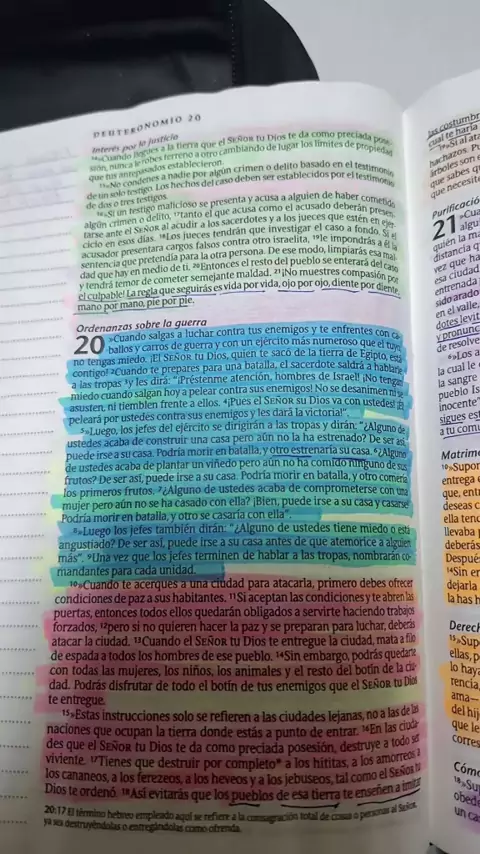 DEUTERONOMIO 20
Interés por la justicia
14»Cuando llegues a la tierra que el SEÑOR tu Dios te da como preciada pose-
sión, nunca le robes terreno a otro cambiando de lugar los límites de propiedad
que tus antepasados establecieron.
15»No condenes a nadie por algún crimen o delito basado en el testimonio
de un solo testigo. Los hechos del caso deben ser establecidos por el testimonio
de dos o tres testigos.
16»Si un testigo malicioso se presenta y acusa a alguien de haber cometido
algún crimen o delito, 17tanto el que acusa como el acusado deberán presen-
tarse ante el SEÑOR al acudir a los sacerdotes y a los jueces que estén en ejer-
cicio en esos días. 18Los jueces tendrán que investigar el caso a fondo. Si el
acusador presentara cargos falsos contra otro israelita, 19le impondrás a él la
sentencia que pretendía para la otra persona. De ese modo, limpiarás esa mal-
dad que hay en medio de ti. 20Entonces el resto del pueblo se enterará del caso
y tendrá temor de cometer semejante maldad. 21¡No muestres compasión por
el culpable! La regla que seguirás es vida por vida, ojo por ojo, diente por diente,
mano por mano, pie por pie.
Ordenanzas sobre la guerra
20 »Cuando salgas a luchar contra tus enemigos y te enfrentes con ca-
ballos y carros de guerra y con un ejército más numeroso que el tuyo,
no tengas miedo. ¡El SEÑOR tu Dios, quien te sacó de la tierra de Egipto, está
contigo! 2Cuando te prepares para una batalla, el sacerdote saldrá a hablarle
a las tropas 3y les dirá: "¡Préstenme atención, hombres de Israel! ¡No tengan
miedo cuando salgan hoy a pelear contra sus enemigos! No se desanimen ni se
asusten, ni tiemblen frente a ellos. 4¡Pues el SEÑOR su Dios va con ustedes! ¡Él
peleará por ustedes contra sus enemigos y les dará la victoria!".
5»Luego, los jefes del ejército se dirigirán a las tropas y dirán: "¿Alguno de
ustedes acaba de construir una casa pero aún no la ha estrenado? De ser así,
puede irse a su casa. Podría morir en batalla, y otro estrenaría su casa. 6¿Alguno
de ustedes acaba de plantar un viñedo pero aún no ha comido ninguno de sus
frutos? De ser así, puede irse a su casa. Podría morir en batalla, y otro comería
los primeros frutos. 7¿Alguno de ustedes acaba de comprometerse con una
mujer pero aún no se ha casado con ella? ¡Bien, puede irse a su casa y casarse!
Podría morir en batalla, y otro se casaría con ella".
8»Luego los jefes también dirán: "¿Alguno de ustedes tiene miedo o está
angustiado? De ser así, puede irse a su casa antes de que atemorice a alguien
más". 9Una vez que los jefes terminen de hablar a las tropas, nombrarán co-
mandantes para cada unidad.
10»Cuando te acerques a una ciudad para atacarla, primero debes ofrecer
condiciones de paz a sus habitantes. 11Si aceptan las condiciones y te abren las
puertas, entonces todos ellos quedarán obligados a servirte haciendo trabajos
forzados, 12pero si no quieren hacer la paz y se preparan para luchar, deberás
atacar la ciudad. 13Cuando el SEÑOR tu Dios te entregue la ciudad, mata a filo
de espada a todos los hombres de ese pueblo. 14Sin embargo, podrás quedarte
con todas las mujeres, los niños, los animales y el resto del botín de la ciu-
dad. Podrás disfrutar de todo el botín de tus enemigos que el SEÑOR tu Dios
te entregue.
15»Estas instrucciones solo se refieren a las ciudades lejanas, no a las de las
naciones que ocupan la tierra donde estás a punto de entrar. 16En las ciuda-
des que el SEÑOR tu Dios te da como preciada posesión, destruye a todo ser
viviente. 17Tienes que destruir por completo* a los hititas, a los amorreos, a
los cananeos, a los ferezeos, a los heveos y a los jebuseos, tal como el SEÑOR tu
Dios te ordenó. 18Así evitarás que los pueblos de esa tierra te enseñen a imitar
20:17 El término hebreo empleado aquí se refiere a la consagración total de cosas o personas al SEÑOR,
ya sea destruyéndolas o entregándolas como ofrenda.
las costumbr
cual te haría
19»Si al ata
hachazos. Pu
árboles son e
que sabes qu
que necesite
Purificació
21 »Cua
algui
quién la ma
distancia q
vez que ha
esa ciudad
entrenada
sido arado
en el valle.
dotes levit
y pronunc
de resolve
6»Los a
la cual le
la sangre
pueblo Is
inocente"
sigues est
a tu comu
Matrimo
10»Supor
entrega e
que, entr
deseas c
ella tend
llevaba p
deberás
Después
14Sin em
dejarla
la has h
Derech
15»Supo
ellas, p
lo haya
rencia,
ama—
del hij
que le
corres
Cómo
18»Su
obede
un ca